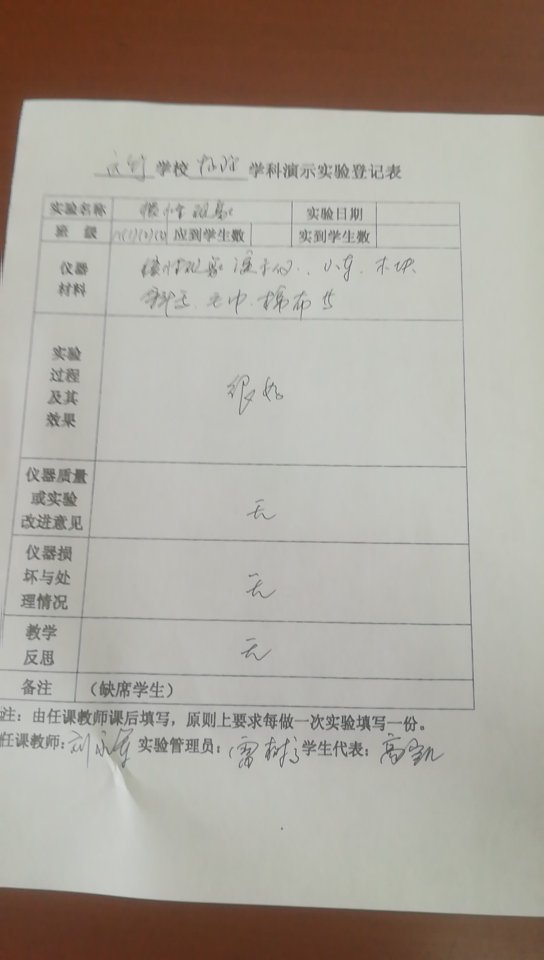 学校 物理 学科演示实验登记表
实验名称 惯性现象 实验日期
班 级 应到学生数 实到学生数
仪器材料 惯性现象演示仪、小车、木块
毛巾、棉布等
实验过程及其效果 很好
仪器质量或实验改进意见 无
仪器损坏与处理情况 无
教学反思 无
备注 （缺席学生）
注：由任课教师课后填写，原则上要求每做一次实验填写一份。
任课教师：刘 实验管理员：雷 学生代表：高